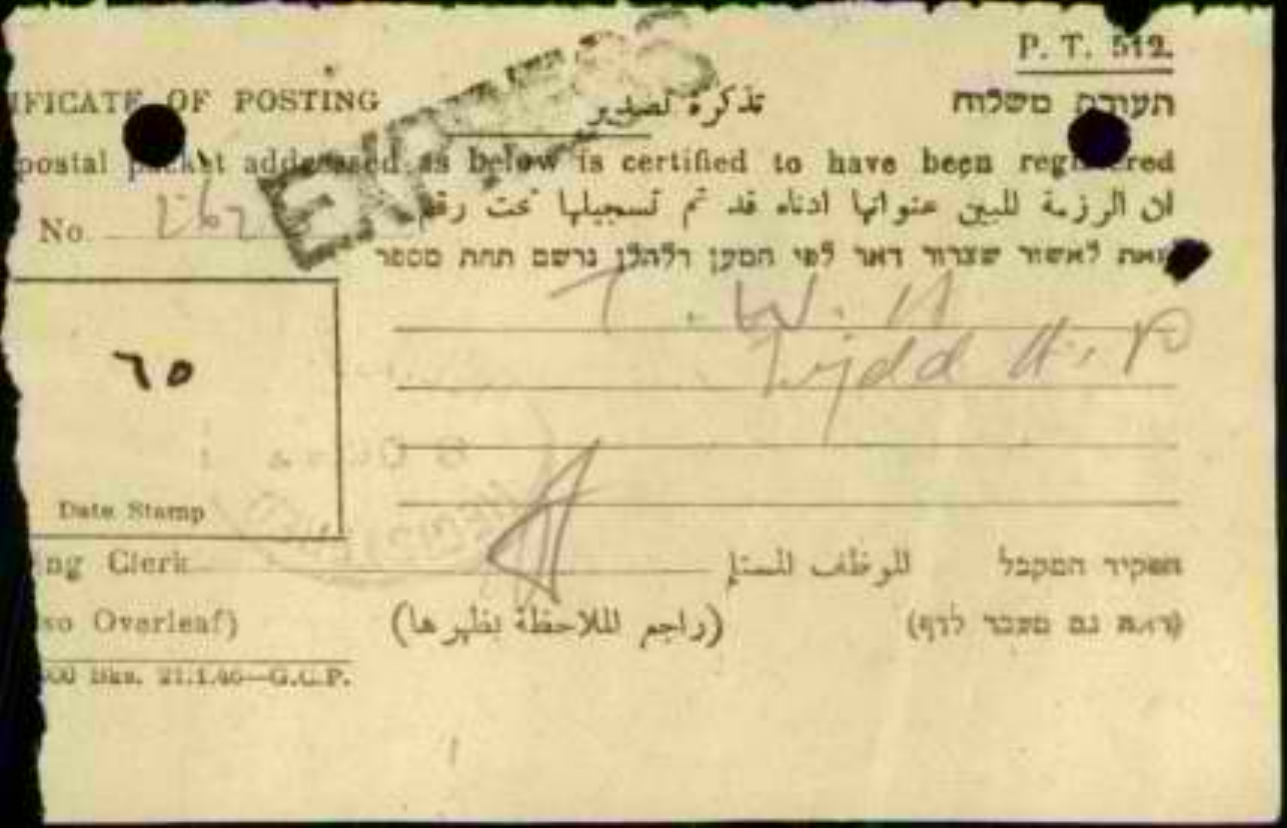 P. T. 512.
IFICATE OF POSTING تذكرة تصدير תעודת משלוח
postal packet addressed as below is certified to have been registered
ان الرزمة المبين عنوانها ادناه قد تم تسجيلها تحت رقم
No.
זאת לאשור שצרור דאר לפי המען דלהלן נרשם תחת מספר
T. W. A
Lydd A. P
٦٥
Date Stamp
ng Clerk الموظف المستلم הפקיד המקבל
so Overleaf) (راجع الملاحظة بظهرها) (ראה גם מעבר לדף)
00 Bks. 21.1.46—G.C.P.